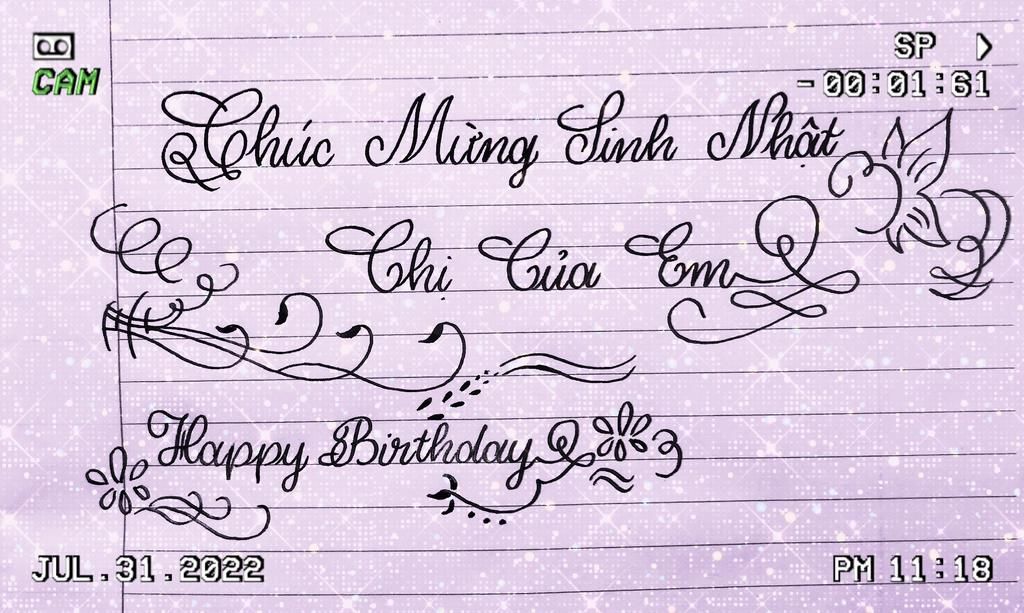 CAM
SP
-00:01:61
Chúc Mừng Sinh Nhật
Chị Của Em
Happy Birthday
JUL.31.2022
PM 11:18